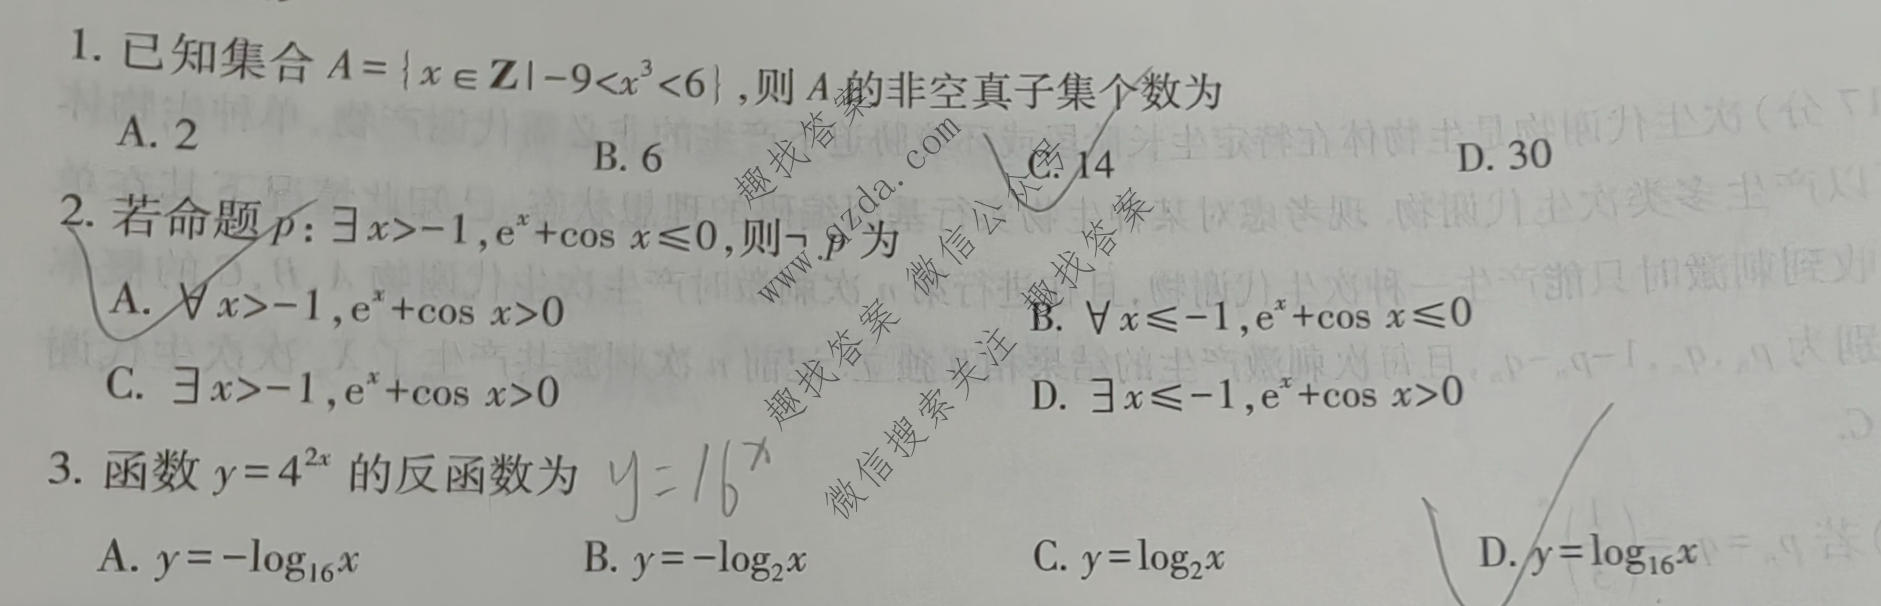 1. 已知集合 A={x∈Z|-9<x³<6},则 A 的非空真子集个数为
A. 2 B. 6 C. 14 D. 30
2. 若命题 p:∃x>-1,eˣ+cos x≤0,则¬p 为
A. ∀x>-1,eˣ+cos x>0 B. ∀x≤-1,eˣ+cos x≤0
C. ∃x>-1,eˣ+cos x>0 D. ∃x≤-1,eˣ+cos x>0
3. 函数 y=4²ˣ 的反函数为 y=16ˣ
A. y=-log₁₆x B. y=-log₂x C. y=log₂x D. y=log₁₆x
趣找答案
www.qzda.com
趣找答案 微信公众号
微信搜索关注 趣找答案